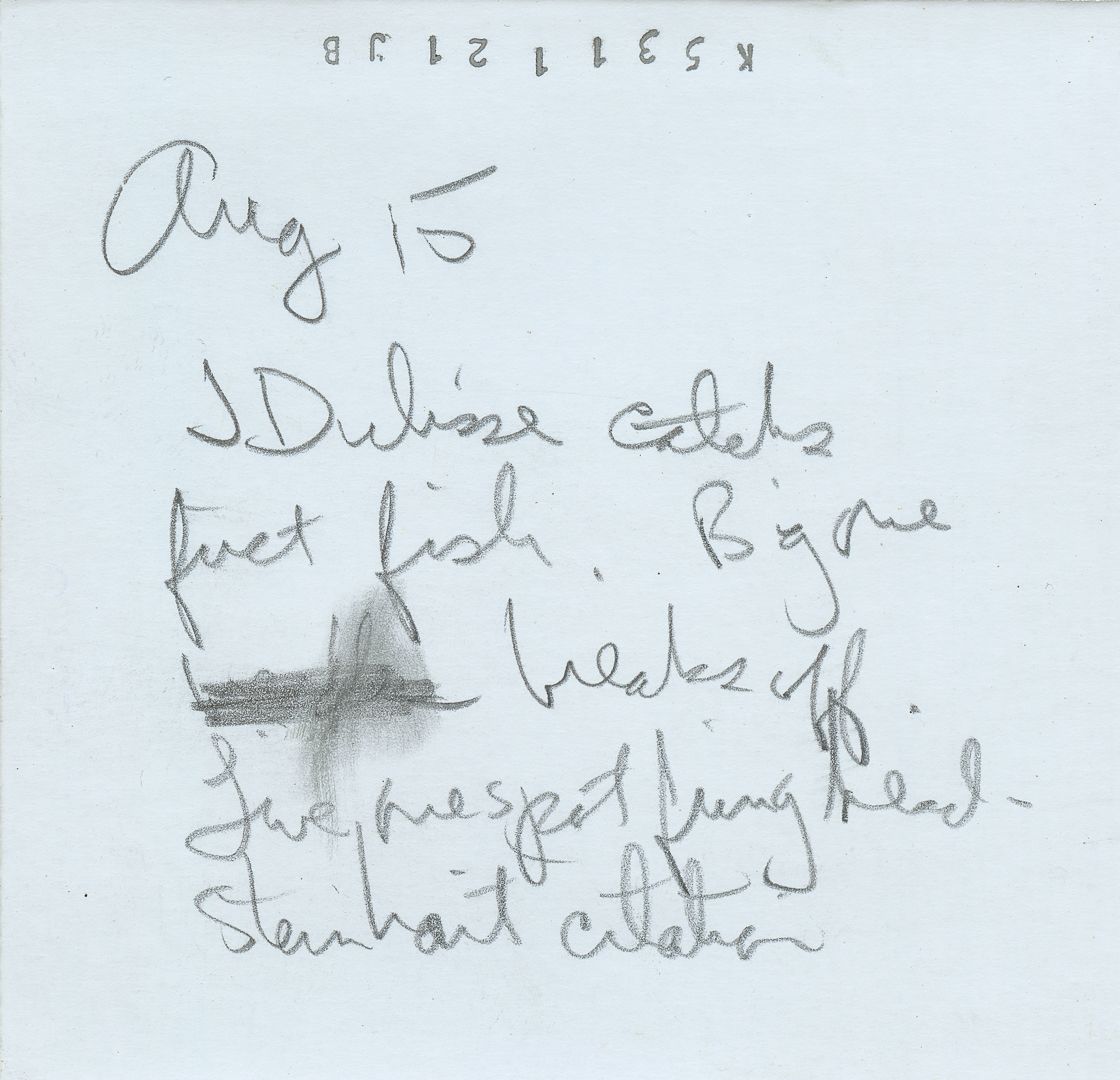 K531121JB
Aug 15
J Dulisse catchs
first fish. Big one
breaks off.
Live one spot fringhead -
Steinhart citation